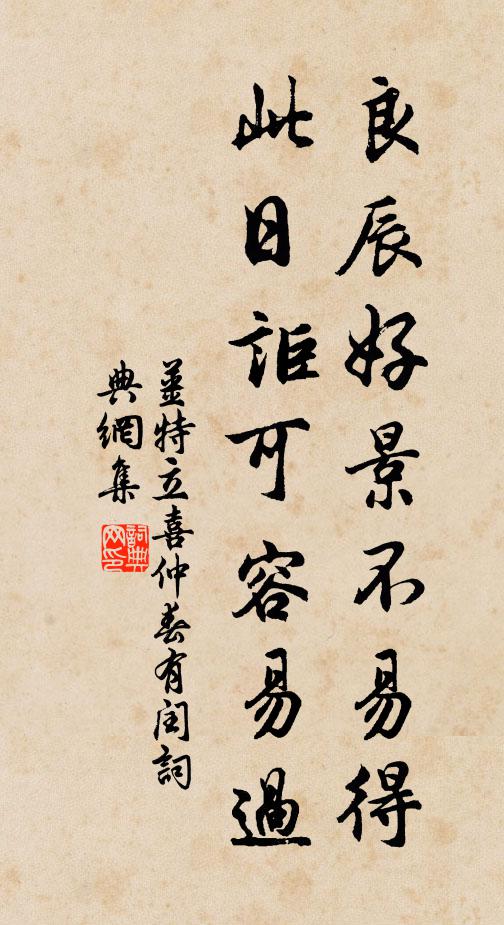 良辰好景不易得
此日詎可容易過
姜特立喜仲春有閏詞
典網集
詞典
网印